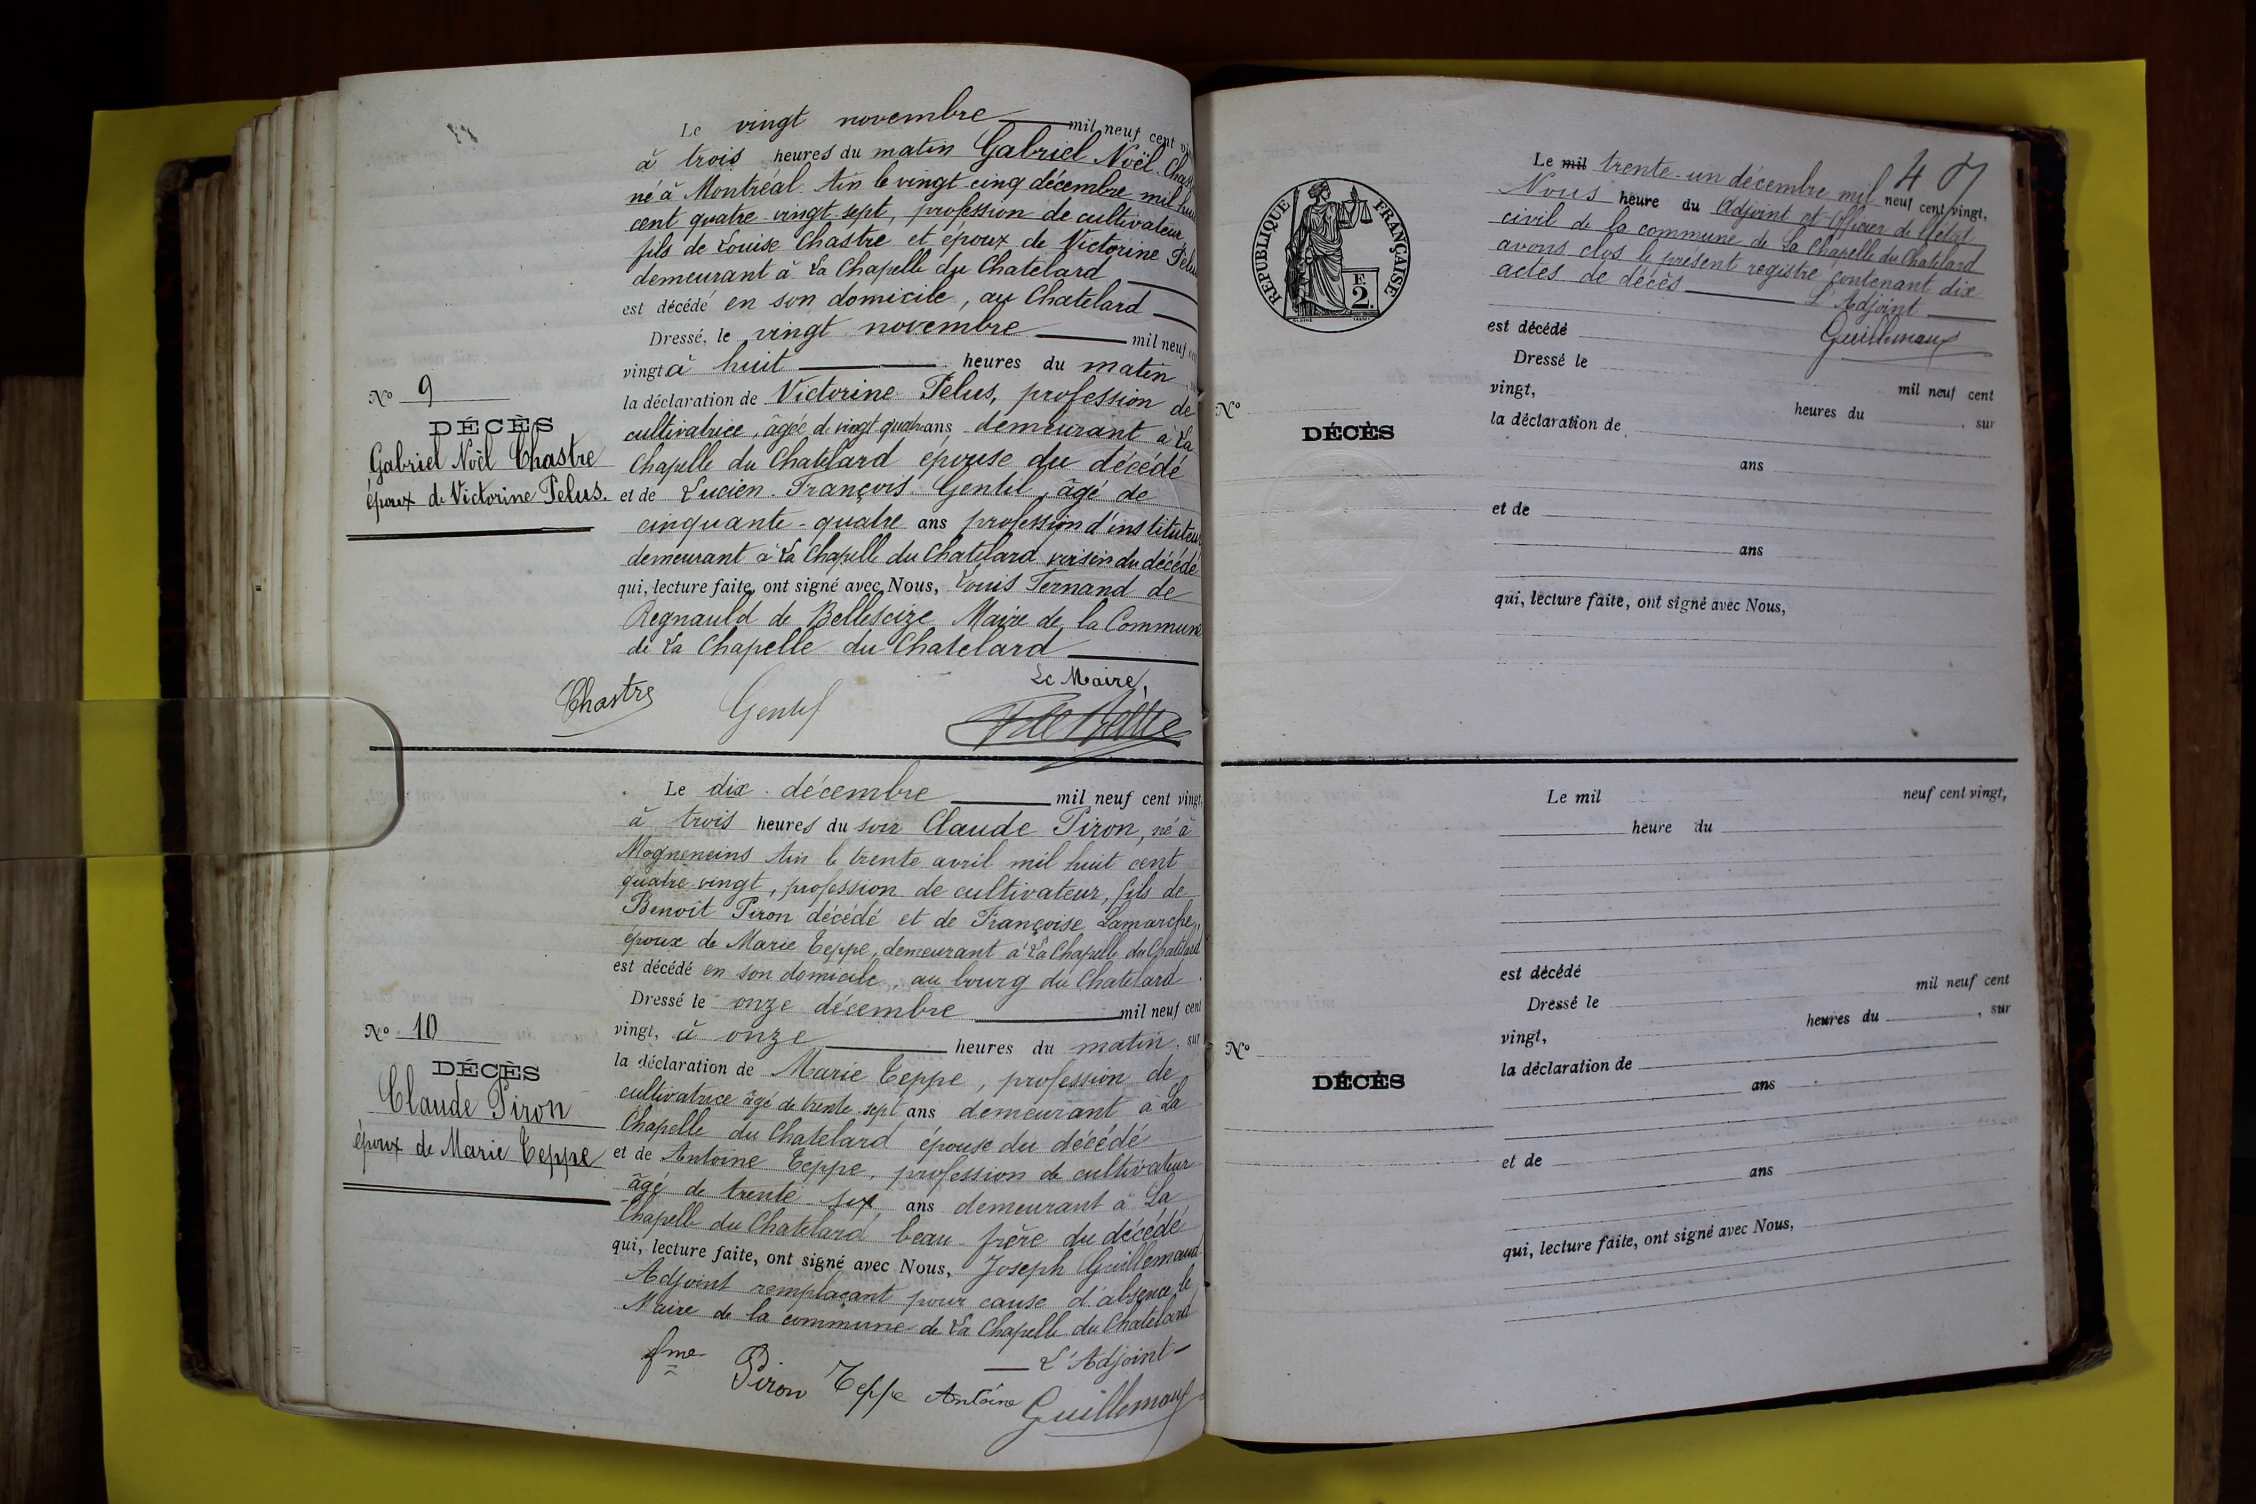 Le vingt novembre mil neuf cent
à trois heures du matin Gabriel Noël
né à Montréal Ain le vingt cinq décembre mil huit
cent quatre-vingt-sept, profession de cultivateur
fils de Louise Chastre et époux de Victorine Pelus
demeurant à La Chapelle du Chatelard
est décédé en son domicile, au Chatelard
Dressé, le vingt novembre mil neuf
vingt à huit heures du matin
la déclaration de Victorine Pelus, profession de
cultivatrice, âgée de vingt quatre ans demeurant à La
Chapelle du Chatelard épouse du décédé
et de Lucien François Gentil, âgé de
cinquante-quatre ans profession d'instituteur
demeurant à La Chapelle du Chatelard voisin du décédé
qui, lecture faite, ont signé avec Nous, Louis Fernand de
Regnauld de Bellescize Maire de la Commune
de La Chapelle du Chatelard
Le Maire,
Chastre Gentil
No 9
DÉCÈS
Gabriel Noël Chastre
époux de Victorine Pelus.
Le dix décembre mil neuf cent vingt,
à trois heures du soir Claude Piron, né à
Mogneneins Ain le trente avril mil huit cent
quatre vingt, profession de cultivateur, fils de
Benoit Piron décédé et de Françoise Lamarche,
époux de Marie Teppe, demeurant à La Chapelle du Chatelard
est décédé en son domicile, au bourg du Chatelard
Dressé le onze décembre mil neuf cent
vingt, à onze heures du matin, sur
la déclaration de Marie Teppe, profession de
cultivatrice âgé de trente sept ans demeurant à La
Chapelle du Chatelard épouse du décédé
et de Antoine Teppe, profession de cultivateur
âgé de trente six ans demeurant à La
Chapelle du Chatelard beau-frère du décédé
qui, lecture faite, ont signé avec Nous, Joseph Guillemaud
Adjoint remplaçant pour cause d'absence le
Maire de la commune de La Chapelle du Chatelard
L'Adjoint
fme Piron Teppe Antoine Guillemaud
No 10
DÉCÈS
Claude Piron
époux de Marie Teppe
RÉPUBLIQUE FRANÇAISE
F.
2.
Le mil trente-un décembre mil neuf cent vingt,
Nous heure du Adjoint et Officier de l'état
civil de la commune de La Chapelle du Chatelard
avons clos le présent registre contenant dix
actes de décès
L'Adjoint
est décédé Guillemaud
Dressé le mil neuf cent
vingt, heures du , sur
la déclaration de
ans
et de
ans
qui, lecture faite, ont signé avec Nous,
No
DÉCÈS
Le mil neuf cent vingt,
heure du
est décédé
Dressé le mil neuf cent
vingt, heures du , sur
la déclaration de
ans
et de
ans
qui, lecture faite, ont signé avec Nous,
No
DÉCÈS